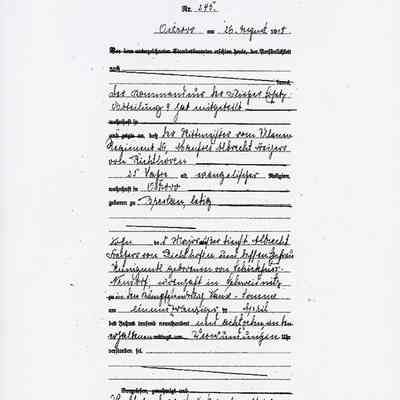 Nr. 245.
Ostrowo am 26. August 1918
Vor dem unterzeichneten Standesbeamten erschien heute, der Persönlichkeit
nach
kannt,
Der Kommandeur der
Abteilung 9 hat mitgeteilt
wohnhaft in
und zeigte an, daß der Rittmeister vom Ulanen
Regiment Manfred Albrecht Freiherr
von Richthofen
25 Jahre alt, evangelischer Religion,
wohnhaft in Ostrowo
geboren zu Breslau, ledig
Sohn des Majors Albrecht
Freiherr von Richthofen und dessen Ehefrau
Kunigunde geborenen von Schickfus-
Neudorf, wohnhaft in Schweidnitz
zu in den Somme
am einundzwanzigsten April
des Jahres tausend neunhundert und achtzehn an den
Verwundungen Uhr
verstorben sei.
Vorgelesen, genehmigt und